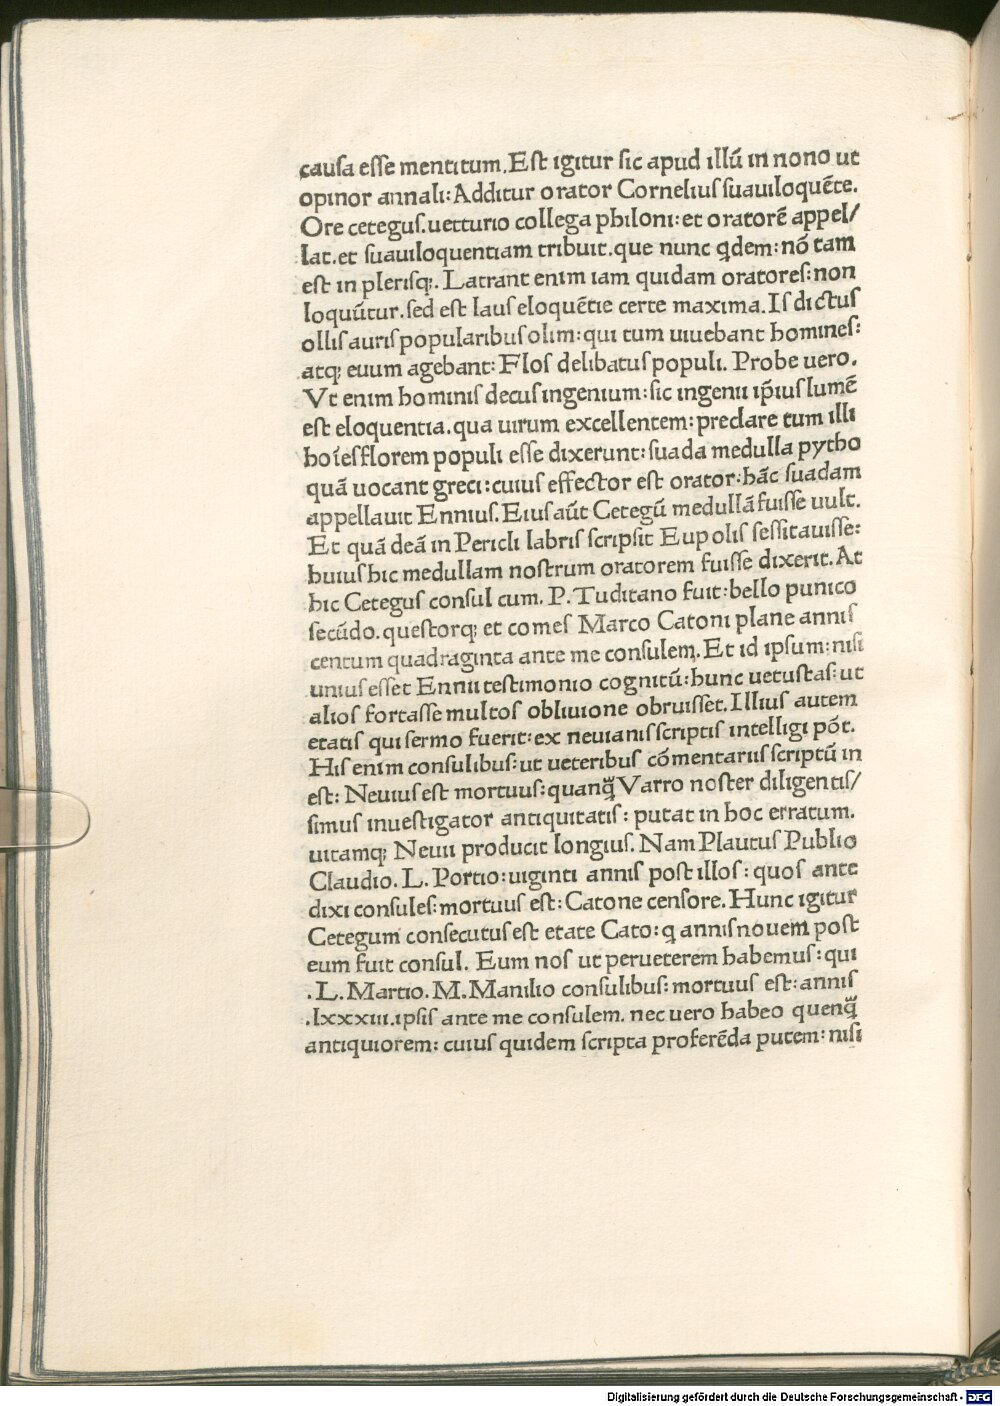 cauſa eſſe mentitum.Eſt igitur ſic apud illũ in nono ut
opinor annali:Additur orator Corneliuſ ſuauiloquẽte.
Ore ceteguſ.uetturio collega philoni:et oratorẽ appel/
lat.et ſuauiloquentiam tribuit.que nunc q̃dem:nõ tam
eſt in pleriſq;. Latrant enim iam quidam oratoreſ:non
loquũtur.ſed eſt lauſ eloquẽtie certe maxima.Iſ dictuſ
olliſ auriſ popularibuſ olim:qui tum uiuebant homineſ:
atq; euum agebant: Floſ delibatuſ populi. Probe uero.
Vt enim hominiſ decuſ ingenium:ſic ingenii ip̃iuſ lumẽ
eſt eloquentia.qua uirum excellentem:preclare tum illi
hoĩeſ florem populi eſſe dixerunt:ſuada medulla pytho
quã uocant greci:cuiuſ effector eſt orator:hãc ſuadam
appellauit Enniuſ.Eiuſ aũt Cetegũ medullã fuiſſe uult.
Et quã deã in Pericli labriſ ſcripſit Eupoliſ ſeſſitauiſſe:
huiuſ hic medullam noſtrum oratorem fuiſſe dixerit.At
hic Ceteguſ conſul cum. P.Tuditano fuit:bello punico
ſecũdo.queſtorq; et comeſ Marco Catoni plane anniſ
centum quadraginta ante me conſulem.Et id ipſum:niſi
uniuſ eſſet Ennii teſtimonio cognitũ:hunc uetuſtaſ:ut
alioſ fortaſſe multoſ obliuione obruiſſet.Illiuſ autem
etatiſ qui ſermo fuerit:ex neuianiſ ſcriptiſ intelligi põt.
Hiſ enim conſulibuſ:ut ueteribuſ cõmentariiſ ſcriptũ in
eſt: Neuiuſ eſt mortuuſ:quanq̃ Varro noſter diligentiſ/
ſimuſ inueſtigator antiquitatiſ: putat in hoc erratum.
uitamq; Neuii producit longiuſ. Nam Plautuſ Publio
Claudio.L.Portio:uiginti anniſ poſt illoſ: quoſ ante
dixi conſuleſ:mortuuſ eſt: Catone cenſore.Hunc igitur
Cetegum conſecutuſ eſt etate Cato:q anniſ nouem poſt
eum fuit conſul. Eum noſ ut perueterem habemuſ:qui
.L.Martio.M.Manilio conſulibuſ:mortuuſ eſt:anniſ
.lxxxiii.ipſiſ ante me conſulem. nec uero habeo quenq̃
antiquiorem: cuiuſ quidem ſcripta proferẽda putem:niſi
Digitalisierung gefördert durch die Deutsche Forschungsgemeinschaft - DFG